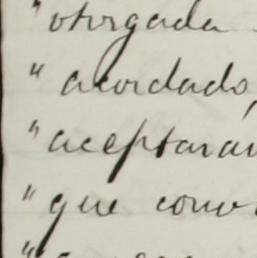 "otorgada
"acordado,
"aceptaran
"que conv